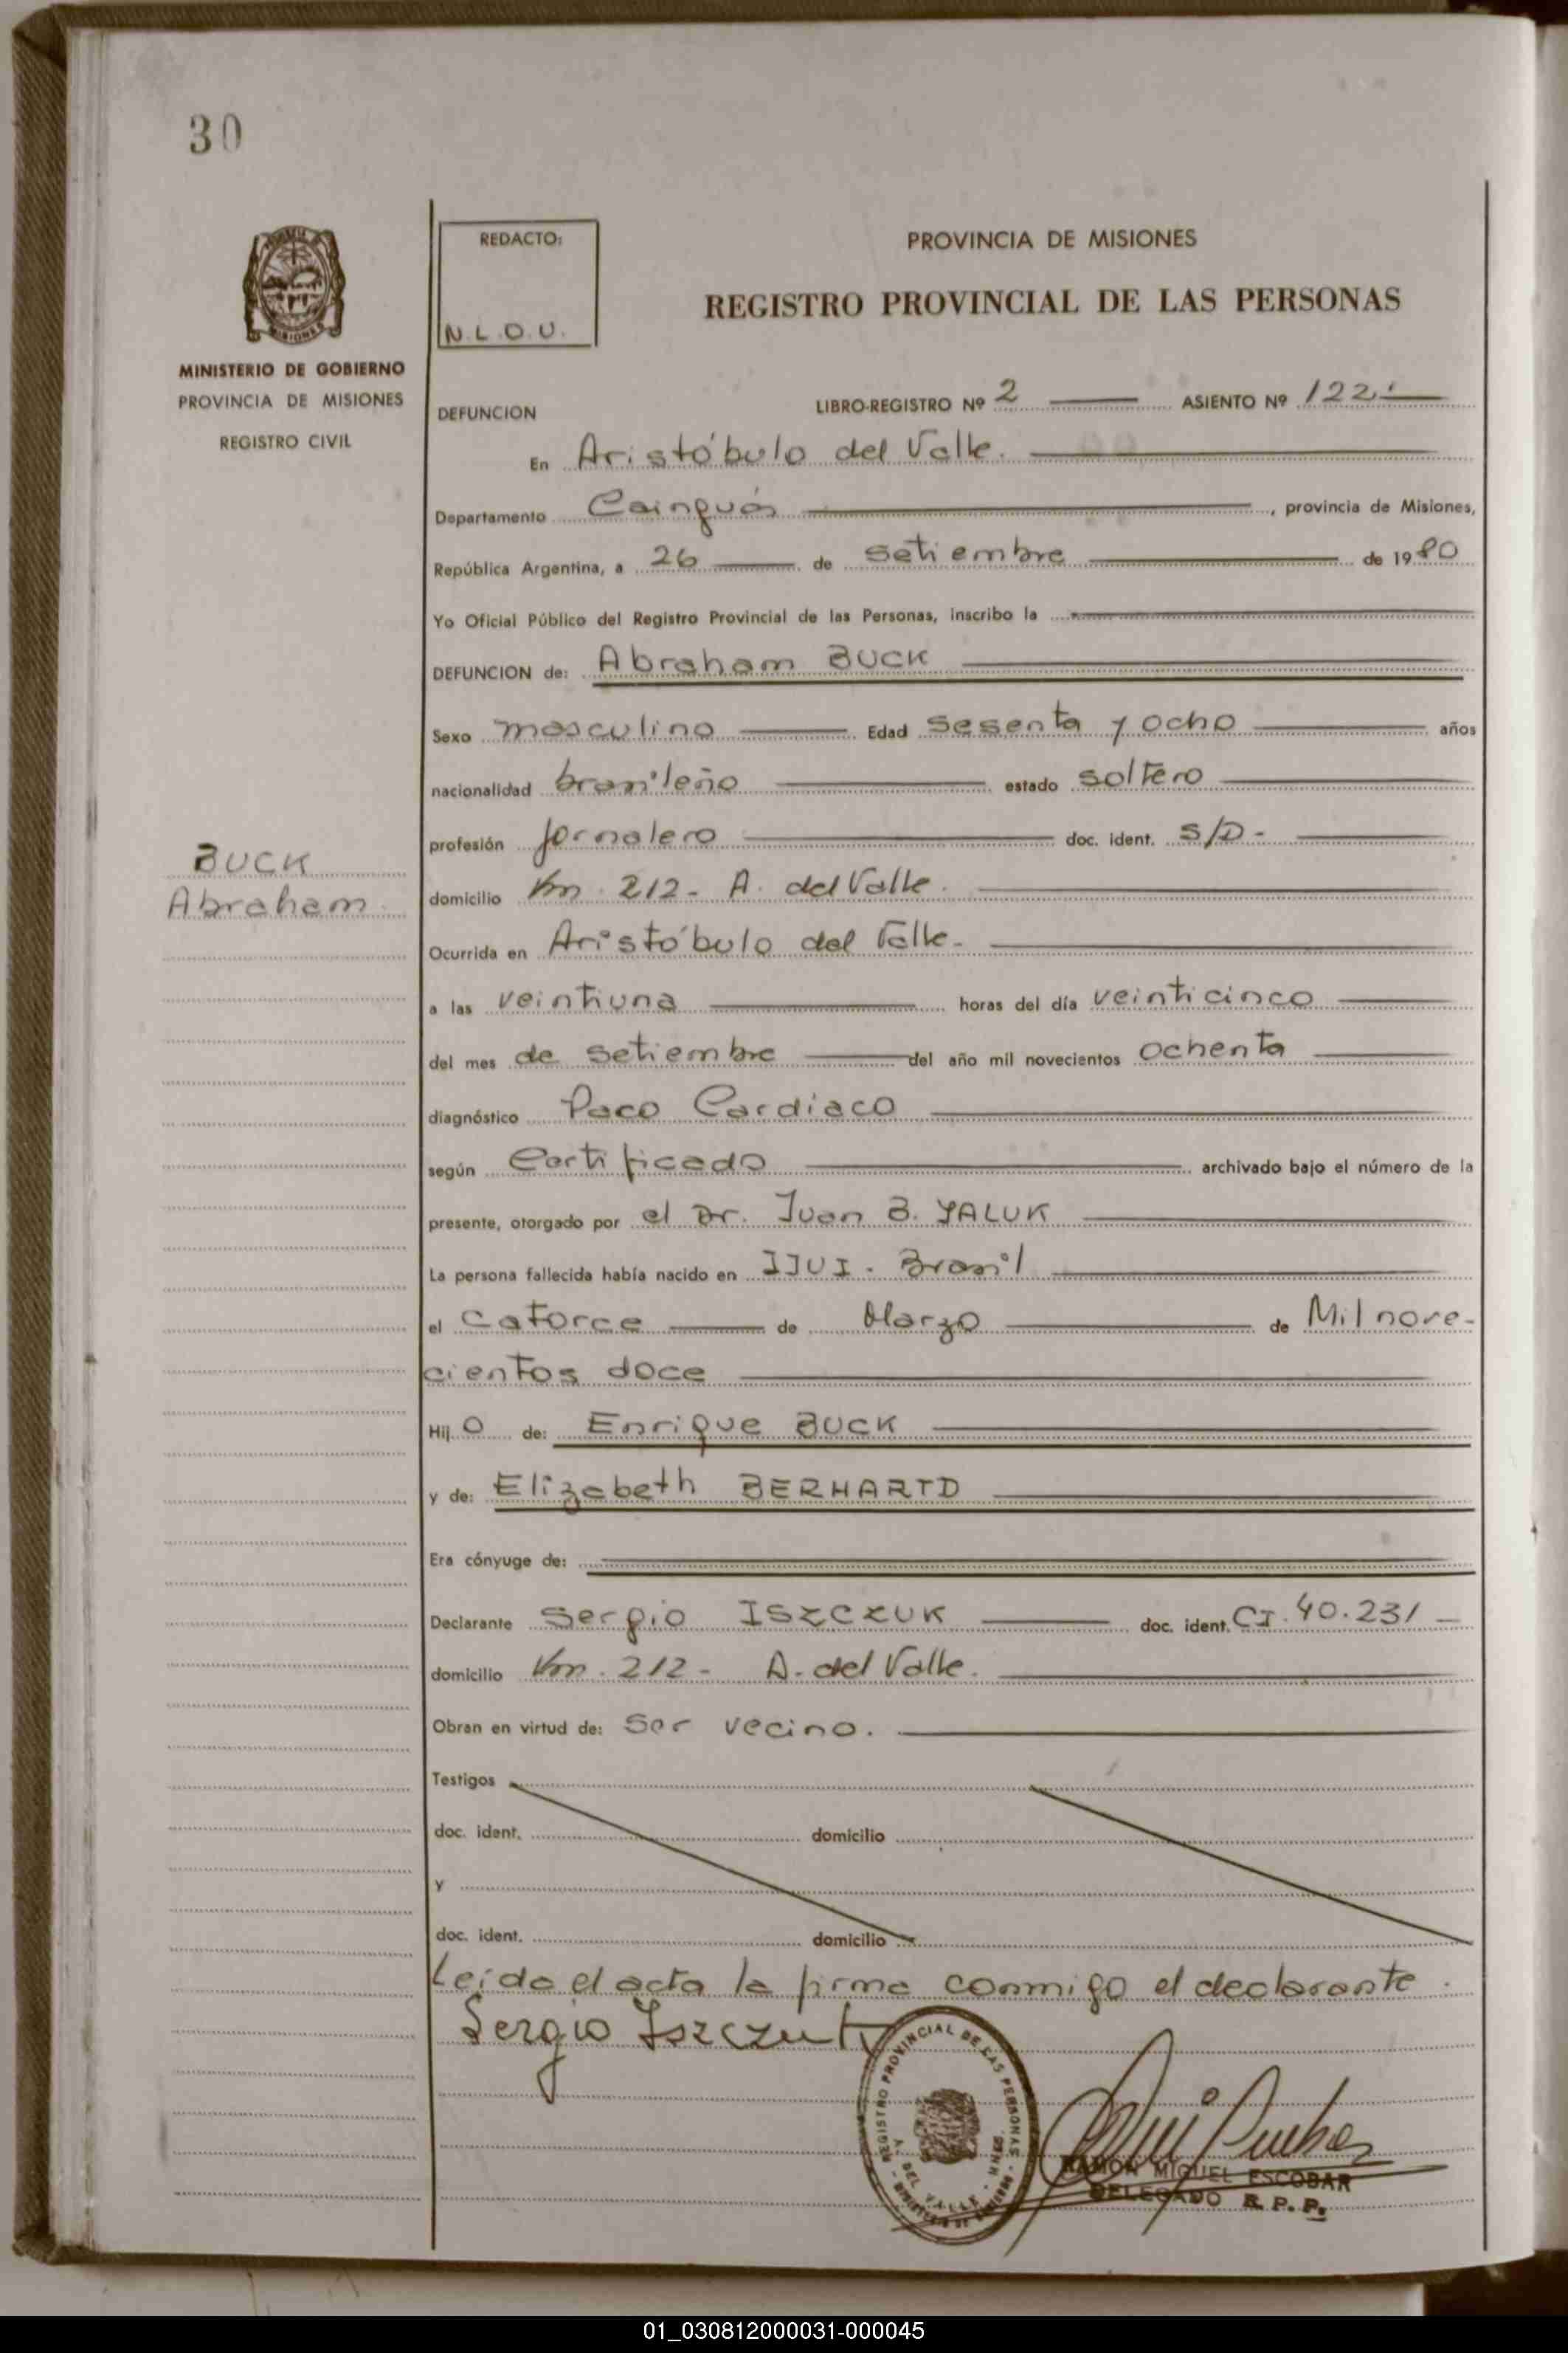 30
REDACTO:
N.L.O.U.
PROVINCIA DE MISIONES
REGISTRO PROVINCIAL DE LAS PERSONAS
MINISTERIO DE GOBIERNO
PROVINCIA DE MISIONES
REGISTRO CIVIL
DEFUNCION LIBRO-REGISTRO Nº 2 ASIENTO Nº 122.-
En Aristóbulo del Valle.
Departamento Cainguás, provincia de Misiones,
República Argentina, a 26 de setiembre de 1980
Yo Oficial Público del Registro Provincial de las Personas, inscribo la
DEFUNCION de: Abraham BUCK
Sexo masculino Edad sesenta y ocho años
nacionalidad brasileño estado soltero
profesión jornalero doc. ident. S/D-
BUCK
Abraham.
domicilio Km. 212- A. del Valle.
Ocurrida en Aristóbulo del Valle-
a las veintiuna horas del día veinticinco
del mes de setiembre del año mil novecientos ochenta
diagnóstico Paco Cardiaco
según Certificado archivado bajo el número de la
presente, otorgado por el Dr. Juan B. YALUK
La persona fallecida había nacido en IJUI - Brasil
el catorce de Marzo de Mil nove-
cientos doce
Hij o de: Enrique BUCK
y de: Elizabeth BERHARTD
Era cónyuge de:
Declarante Sergio ISZCZUK doc. ident. CI. 40.231 -
domicilio Km. 212- A. del Valle.
Obran en virtud de: ser vecino.
Testigos
doc. ident. domicilio
y
doc. ident. domicilio
Leída el acta la firma conmigo el declarante.
Sergio Iszczuk
REGISTRO PROVINCIAL DE LAS PERSONAS
A. DEL VALLE - MNES.
MINISTERIO DE GOBIERNO
RAMON MIGUEL ESCOBAR
DELEGADO R. P. P.
01_030812000031-000045